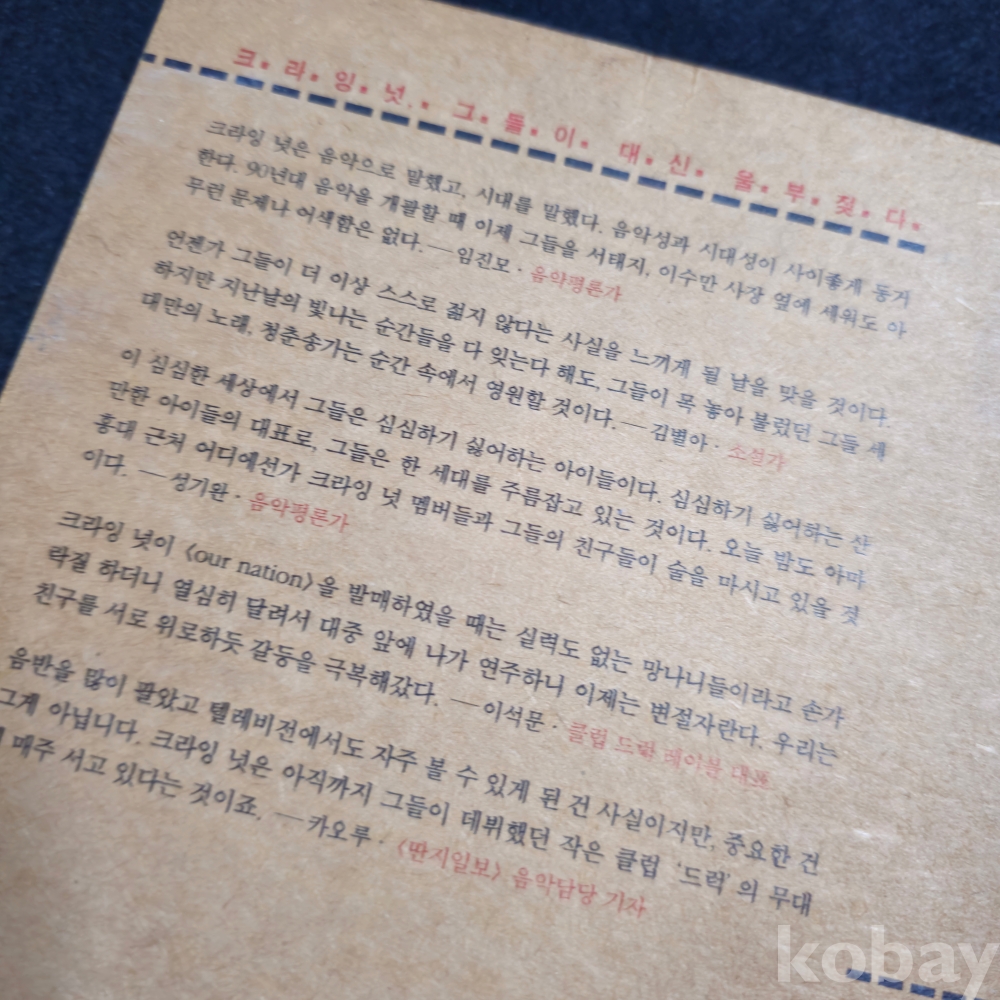 크라잉 넛. 그들이 대신 울부짖다.
크라잉 넛은 음악으로 말했고, 시대를 말했다. 음악성과 시대성이 사이좋게 동거
한다. 90년대 음악을 개괄할 때 이제 그들을 서태지, 이수만 사장 옆에 세워도 아
무런 문제나 어색함은 없다. —임진모 · 음악평론가
언젠가 그들이 더 이상 스스로 젊지 않다는 사실을 느끼게 될 날을 맞을 것이다.
하지만 지난날의 빛나는 순간들을 다 잊는다 해도, 그들이 목 놓아 불렀던 그들 세
대만의 노래, 청춘송가는 순간 속에서 영원할 것이다. —김별아 · 소설가
이 심심한 세상에서 그들은 심심하기 싫어하는 아이들이다. 심심하기 싫어하는 산
만한 아이들의 대표로, 그들은 한 세대를 주름잡고 있는 것이다. 오늘 밤도 아마
홍대 근처 어디에선가 크라잉 넛 멤버들과 그들의 친구들이 술을 마시고 있을 것
이다. —성기완 · 음악평론가
크라잉 넛이 〈our nation〉을 발매하였을 때는 실력도 없는 망나니들이라고 손가
락질 하더니 열심히 달려서 대중 앞에 나가 연주하니 이제는 변절자란다. 우리는
친구를 서로 위로하듯 갈등을 극복해갔다. —이석문 · 클럽 드럭 레이블 대표
음반을 많이 팔았고 텔레비전에서도 자주 볼 수 있게 된 건 사실이지만, 중요한 건
그게 아닙니다. 크라잉 넛은 아직까지 그들이 데뷔했던 작은 클럽 '드럭'의 무대
매주 서고 있다는 것이죠. —카오루 · 〈딴지일보〉 음악담당 기자
kobay